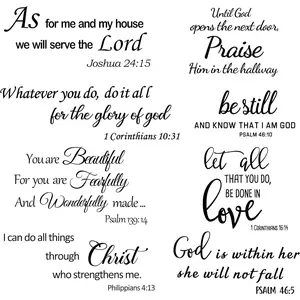 As for me and my house
we will serve the Lord
Joshua 24:15
Whatever you do, do it all
for the glory of god
1 Corinthians 10:31
You are Beautiful
For you are Fearfully
And Wonderfully made ...
Psalm 139:14
I can do all things
through Christ
who strengthens me.
Philippians 4:13
Until God
opens the next door,
Praise
Him in the hallway
be still
AND KNOW THAT I AM GOD
PSALM 46:10
let all
THAT YOU DO,
BE DONE IN
love
1 CORINTHIANS 16:14
God is within her
she will not fall
PSALM 46:5